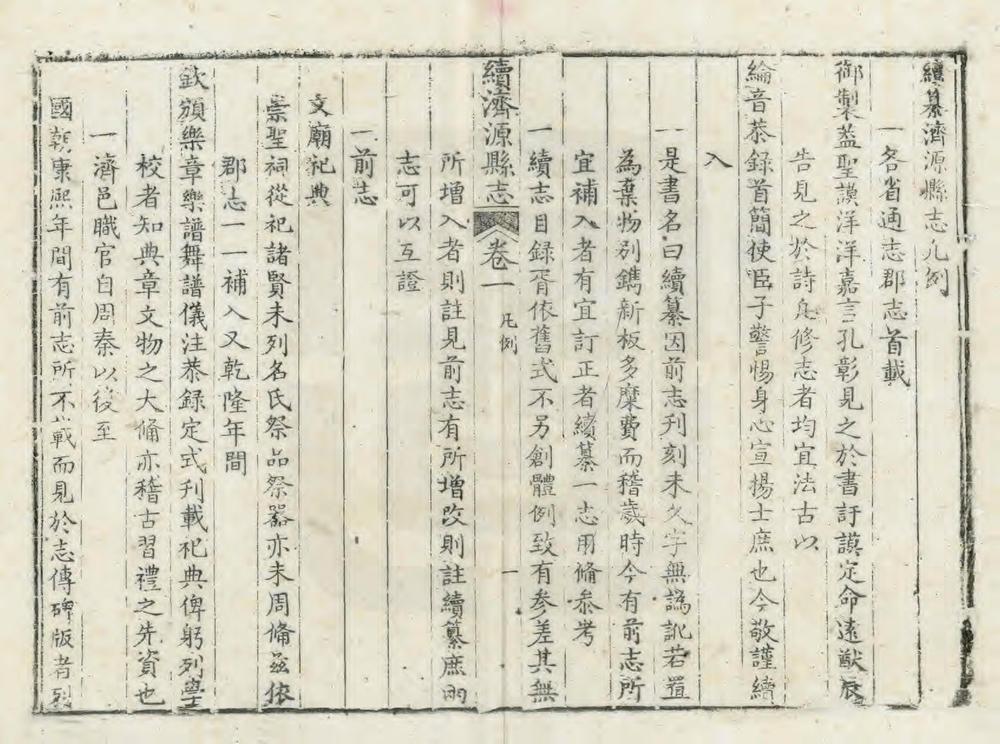 續纂濟源縣志凡例
一各省通志郡志首載
御製蓋聖謨洋洋嘉言孔彰見之於書訏謨定命遠猷辰
告見之於詩凡修志者均宜法古以
綸音恭錄首簡使臣子警惕身心宣揚士庶也今敬謹續
入
一是書名曰續纂因前志刋刻未久字無譌訛若置
為棄物别鐫新板多糜費而稽歲時今有前志所
宜補入者有宜訂正者續纂一志用俻叅考
一續志目録胥依舊式不另創體例致有參差其無
續濟源縣志 卷一 凡例 一
所增入者則註見前志有所增改則註續纂庶兩
志可以互證
一前志
文廟祀典
崇聖祠從祀諸賢未列名氏祭品祭器亦未周俻兹依
郡志一一補入又乾隆年間
欽頒樂章樂譜舞譜儀注恭録定式刋載祀典俾躬列學
校者知典章文物之大俻亦稽古習禮之先資也
一濟邑職官自周秦以後至
國朝康熙年間有前志所不載而見於志傳碑版者列